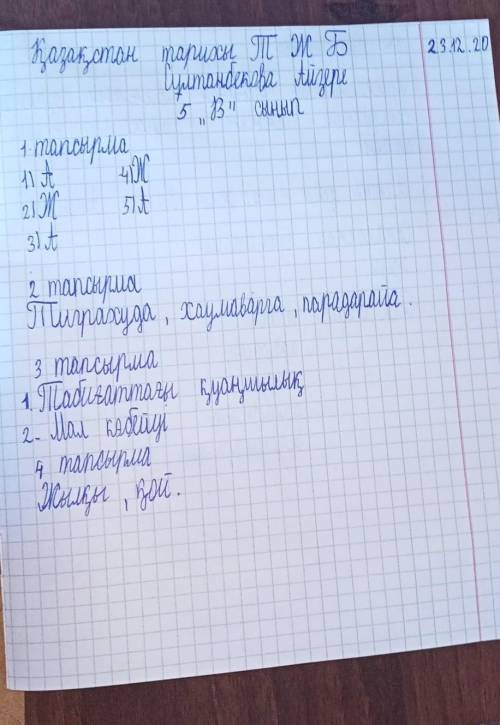 Қазақстан тарихы ТЖБ 23.12.20
Сұлтанбекова Айзере
5 "В" сынып
1 тапсырма
1) А 4) Ж
2) Ж 5) А
3) А
2 тапсырма
Тиграхуда, хаумаварга, парадарайа.
3 тапсырма
1. Табиғаттағы қуаңшылық
2- Мал көбейуі
4 тапсырма
Жылқы, қой.